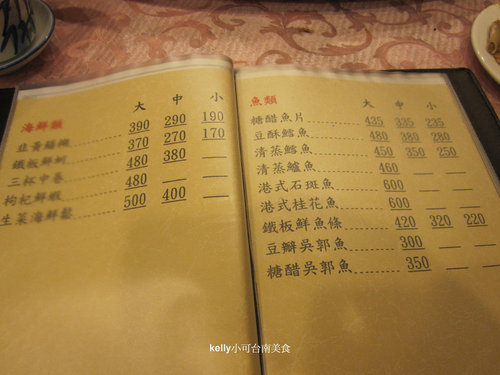 海鮮類 大 中 小
韭黃鱔糊 390 290 190
鐵板鮮蚵 370 270 170
三杯中卷 480 380 —
枸杞鮮蝦 480 — —
生菜海鮮鬆 500 400 —
魚類 大 中 小
糖醋魚片 435 335 235
豆酥鱈魚 480 380 280
清蒸鱈魚 450 350 250
清蒸鱸魚 460 — —
港式石斑魚 600 — —
港式桂花魚 600 — —
鐵板鮮魚條 420 320 220
豆瓣吳郭魚 300 — —
糖醋吳郭魚 350 — —
kelly小可台南美食